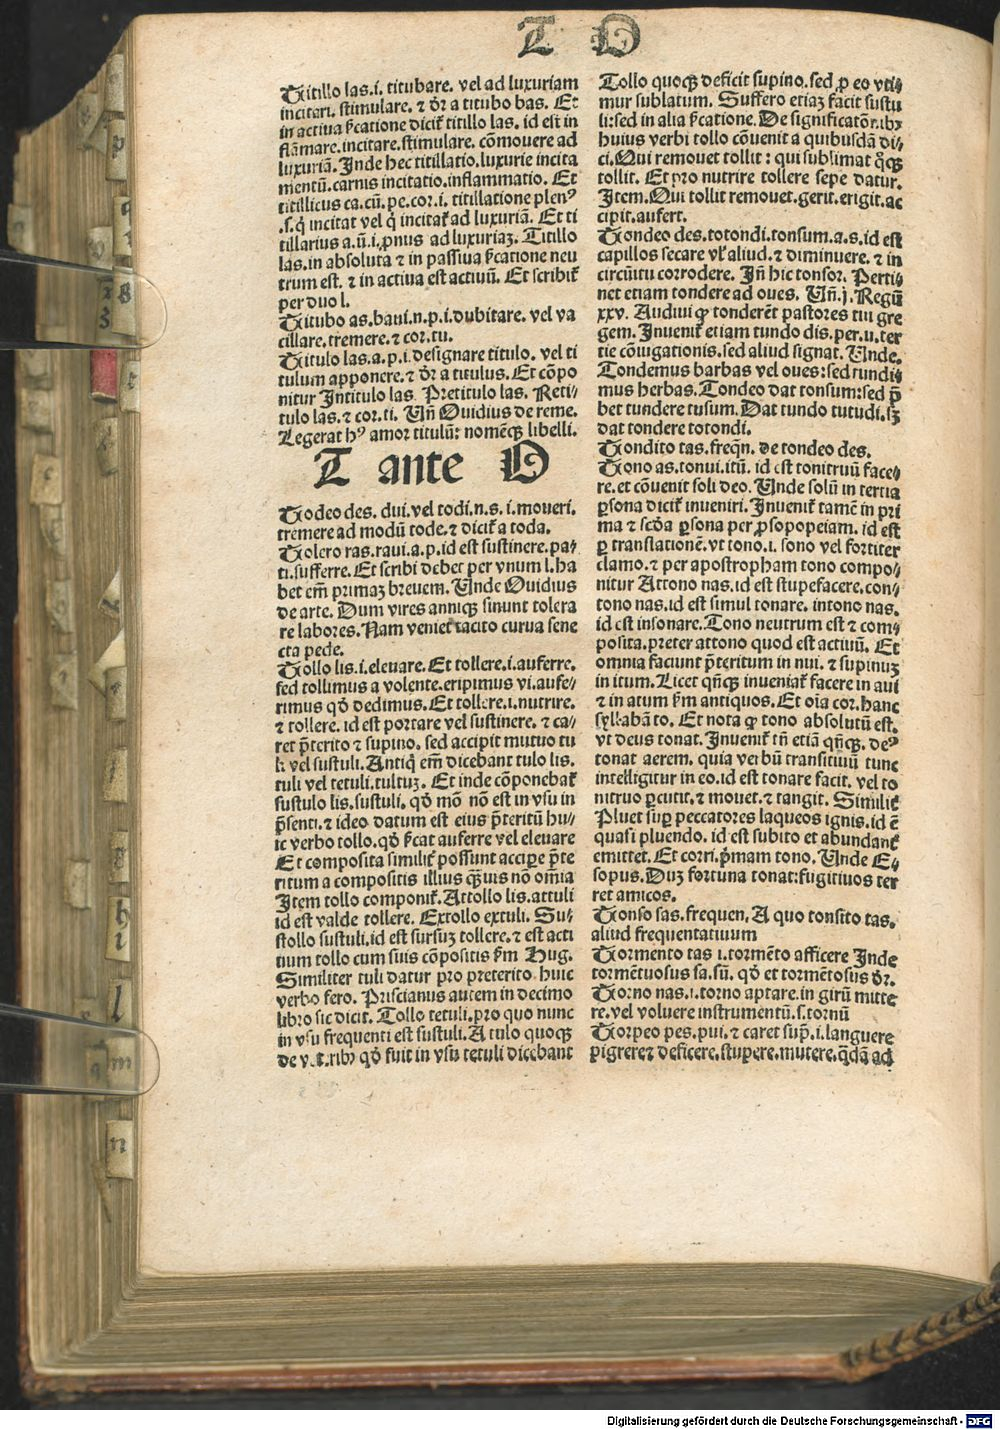 T O
Titillo las.i. titubare. vel ad luxuriam
incitari. stimulare. ⁊ dr̄ a titubo bas. Et
in actiua ſ̄catione dicit᷑ titillo las. id est in
flāmare.incitare.stimulare. cōmouere ad
luxuriā. Inde hec titillatio.luxurie incita
mentū.carnis incitatio.inflammatio. Et
titillicus ca.cū.pe.cor.i. titillatione plenꝰ
.s.q̇ incitat vel q̇ incitat᷑ ad luxuriā. Et ti
tillarius a.ū.i.ꝓnus ad luxuriaꝫ. Titillo
las.in absoluta ⁊ in passiua ſ̄catione neu
trum est. ⁊ in actiua est actiuū. Et scribit᷑
per duo l.
Titubo as.baui.n.p.i.dubitare. vel va
cillare.tremere.⁊ cor.tu.
Titulo las.a.p.i.designare titulo. vel ti
tulum apponere.⁊ dr̄ a titulus. Et cōpo
nitur Intitulo las. Pretitulo las. Reti⸗
tulo las.⁊ cor.ti. Vn̄ Ouidius de reme.
Legerat hꝰ amor titulū: nomēqꝫ libelli.
T ante O
Todeo des. dui.vel todi.n.s.i.moueri.
tremere ad modū tode.⁊ dicit᷑ a toda.
Tolero ras.raui.a.p.id est sustinere.pa⸗
ti.sufferre. Et scribi debet per vnum l.ha
bet em̄ primaꝫ breuem. Vnde Ouidius
de arte. Dum vires anniqꝫ sinunt tolera
re labores. Nam veniet tacito curua sene
cta pede.
Tollo lis.i.eleuare. Et tollere.i.auferre.
sed tollimus a volente.eripimus vi.aufe⸗
rimus qd̄ dedimus. Et tollere.i.nutrire.
⁊ tollere. id est portare vel sustinere. ⁊ ca⸗
ret p̄terito ⁊ supino. sed accipit mutuo tu
li vel sustuli. Antiq̇ em̄ dicebant tulo lis.
tuli vel tetuli.tultuꝫ. Et inde cōponebat᷑
sustulo lis.sustuli. qd̄ mō nō est in vsu in
p̄senti.⁊ ideo datum est eius p̄teritū hu⸗
ic verbo tollo.qd̄ ſ̄cat auferre vel eleuare
Et composita similit᷑ possunt accipe p̄te
ritum a compositis illius qꝫuis nō omnia
Item tollo componit᷑. Attollo lis.attuli
id est valde tollere. Extollo extuli. Su⸗
stollo sustuli.id est sursuꝫ tollere.⁊ est acti
uum tollo cum suis cōpositis ẜm Hug.
Similiter tuli datur pro preterito huic
verbo fero. Priscianus autem in decimo
libro sic dicit. Tollo tetuli.pro quo nunc
in vsu frequenti est sustuli. A tulo quoqꝫ
qd̄ fuit in vsu tetuli dicebant
Tollo quoqꝫ deficit supino.sed ꝓ eo vti⸗
mur sublatum. Suffero etiaꝫ facit sustu
li:sed in alia ſ̄catione. De significatōr.ibꝫ
huius verbi tollo cōuenit a quibusdā di⸗
ci. Qui remouet tollit : qui sublimat qͦqꝫ
tollit. Et pro nutrire tollere sepe datur.
Item. Qui tollit remouet.gerit.erigit.ac
cipit.aufert.
Tondeo des.totondi.tonsum.a.s.id est
capillos secare vl᷑ aliud.⁊ diminuere. ⁊ in
circūitu corrodere. Jn̄ hic tonsor. Perti⸗
net etiam tondere ad oues. Vn̄.j.Regū
xxv. Audiui ꝙ tonderēt pastores tui gre
gem. Inuenit᷑ etiam tundo dis.per.u.ter
tie cōiugationis.sed aliud signat. Vnde.
Tondemus barbas vel oues:sed tundi⸗
mus herbas. Tondeo dat tonsum:sed p̄
bet tundere tusum. Dat tundo tutudi.sꝫ
dat tondere totondi.
Tondito tas.freqn̄. de tondeo des.
Tono as.tonui.itū. id est tonitruū face⸗
re.et cōuenit soli deo. Vnde solū in tertia
ꝑsona dicit᷑ inueniri. Inuenit᷑ tamē in pri
ma ⁊ scd̄a ꝑsona per ꝓsopopeiam. id est
ꝑ translationē.vt tono.i. sono vel fortiter
clamo.⁊ per apostropham tono compo⸗
nitur Attono nas.id est stupefacere.con⸗
tono nas.id est simul tonare. intono nas.
id est insonare. Tono neutrum est ⁊ com⸗
posita.preter attono quod est actiuū. Et
omnia faciunt p̄teritum in nui. ⁊ supinuꝫ
in itum. Licet qn̄qꝫ inueniat᷑ facere in aui
⁊ in atum ẜm antiquos. Et oīa cor.hanc
syllabā to. Et nota ꝙ tono absolutū est.
vt deus tonat. Inuenit᷑ tn̄ etiā qn̄qꝫ. deꝰ
tonat aerem. quia verbū transitiuū tunc
intelligitur in eo.id est tonare facit. vel to
nitruo ꝑcutit.⁊ mouet.⁊ tangit. Similit᷑
Pluet suꝑ peccatores laqueos ignis.id ē
quasi pluendo. id est subito et abundant᷑
emittet. Et corri.p̄mam tono. Vnde E⸗
sopus. Duꝫ fortuna tonat:fugitiuos ter
ret amicos.
Tonso sas.frequen. A quo tonsito tas.
aliud frequentatiuum
Tormento tas i.tormēto afficere Inde
tormētuosus sa.sū. qd̄ et tormētosus dr̄.
Torno nas.i.torno aptare.in girū mitte
re.vel voluere instrumentū.s.tornū
Torpeo pes.pui.⁊ caret sup̄.i.languere
pigrere⁊ deficere.stupere.mutere.q̄dā ad
x
z
8
h
i
l
m
n
Digitalisierung gefördert durch die Deutsche Forschungsgemeinschaft - DFG